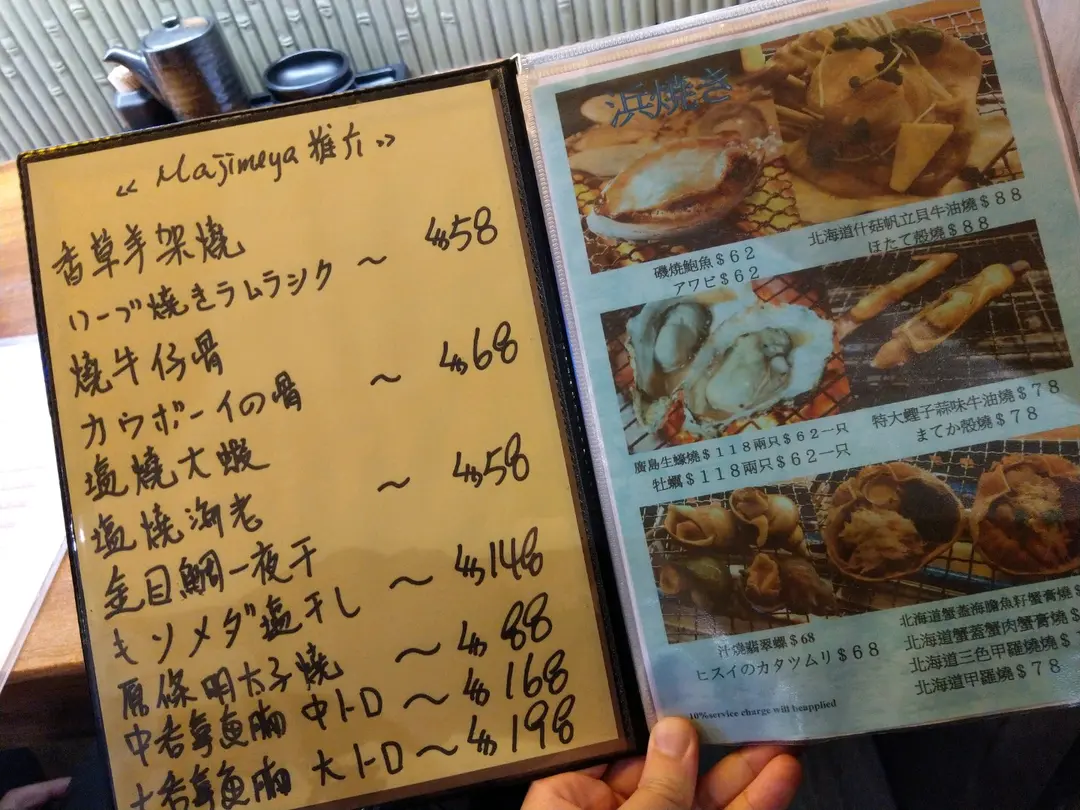 《 Majimeya 推介 》
香草羊架燒 $58
ハーブ焼きラムラシク ～
燒牛仔骨 $68
カウボーイの骨 ～
塩燒大蝦 $58
塩焼海老 ～
金目鯛一夜干 $148
キソメダ塩干し ～
原條明太子燒 ～ $88
中吞拿魚腩 中トロ ～ $168
大吞拿魚腩 大トロ ～ $198
浜焼き
磯燒鮑魚＄６２
アワビ＄６２
北海道什菇帆立貝牛油燒＄８８
ほたて殻燒＄８８
廣島生蠔燒＄１１８兩只＄６２一只
牡蠣＄１１８兩只＄６２一只
特大蟶子蒜味牛油燒＄７８
まてか殻燒＄７８
汁燒翡翠螺＄68
ヒスイのカタツムリ＄６８
北海道蟹盖海膽魚籽蟹膏燒＄
北海道蟹蓋蟹肉蟹膏燒＄
北海道三色甲羅燒燒＄
北海道甲羅燒＄７８
10%service charge will beapplied